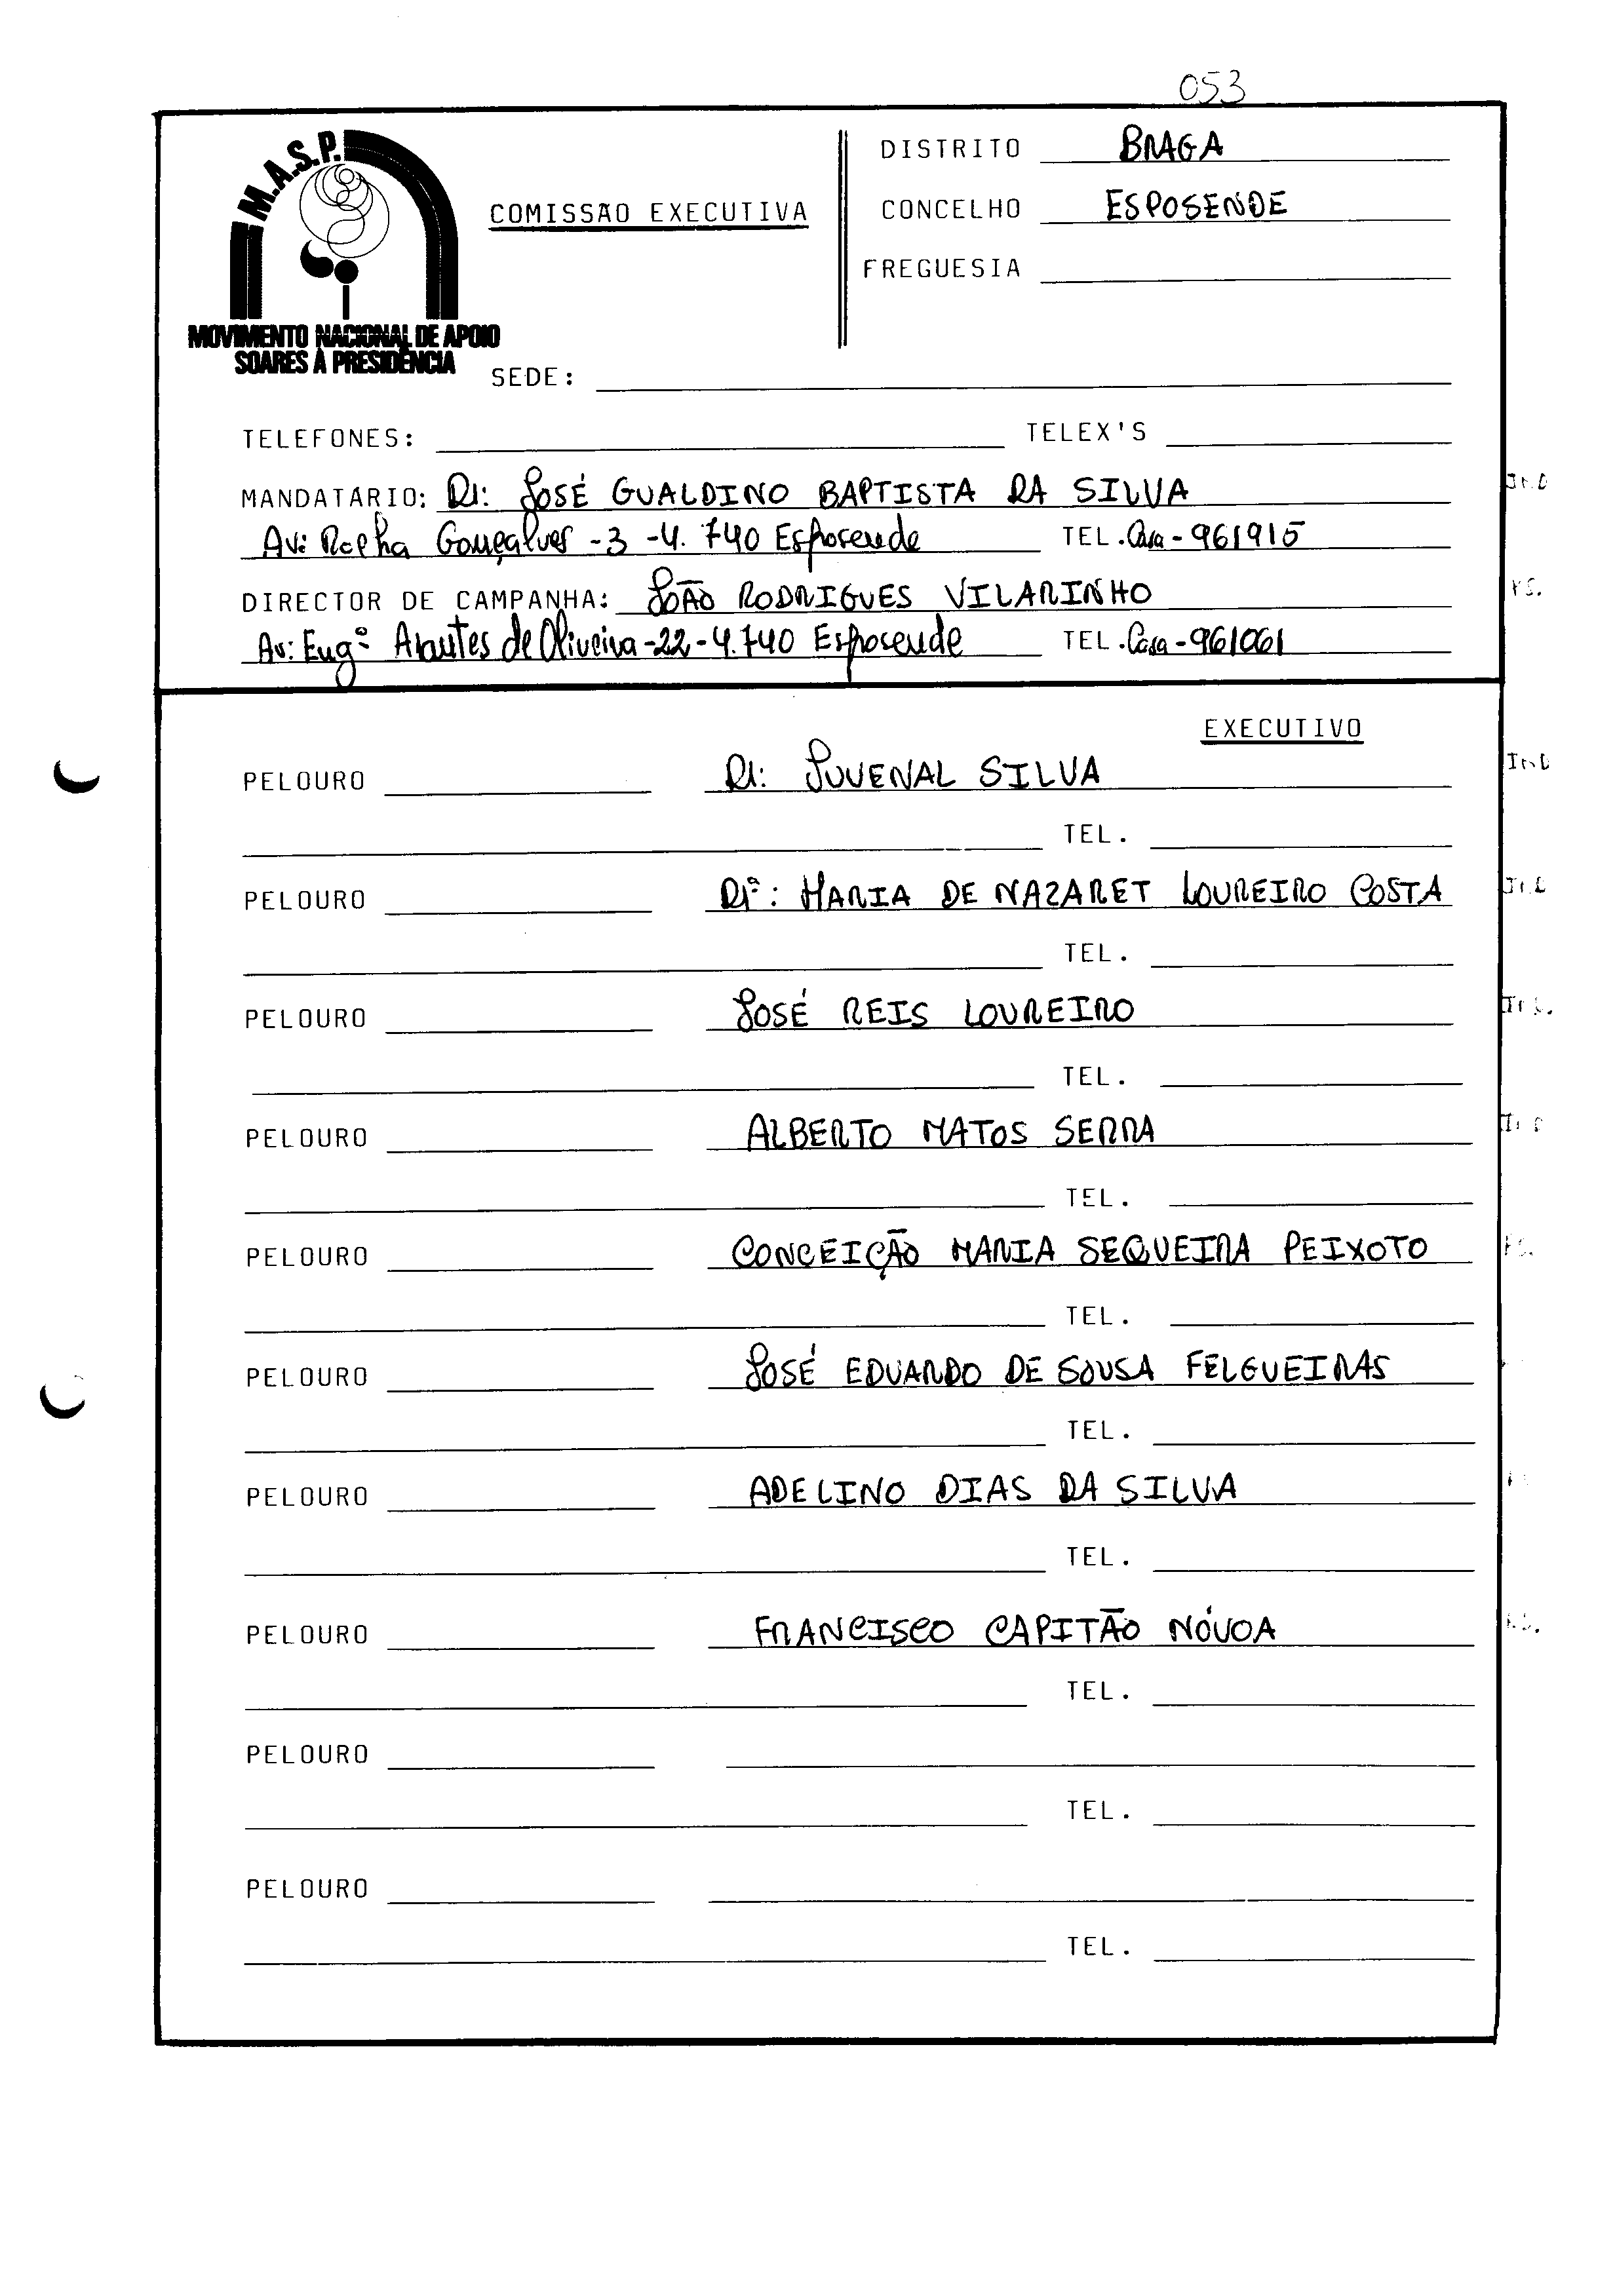 053
M.A.S.P.
MOVIMENTO NACIONAL DE APOIO
SOARES À PRESIDÊNCIA
COMISSÃO EXECUTIVA
DISTRITO BRAGA
CONCELHO ESPOSENDE
FREGUESIA
SEDE:
TELEFONES: TELEX'S
MANDATÁRIO: Dr: JOSÉ GUALDINO BAPTISTA DA SILVA Ind
Av: Rocha Gonçalves - 3 - 4.740 Esposende TEL. Casa - 961915
DIRECTOR DE CAMPANHA: JOÃO RODRIGUES VILARINHO P.S.
Av: Engº Arantes de Oliveira - 22 - 4.740 Esposende TEL. Casa - 961061
EXECUTIVO
PELOURO Dr: JUVENAL SILVA Ind
TEL.
PELOURO Drª: MARIA DE NAZARET LOUREIRO COSTA Ind
TEL.
PELOURO JOSÉ REIS LOUREIRO
TEL.
PELOURO ALBERTO MATOS SERRA
TEL.
PELOURO CONCEIÇÃO MARIA SEQUEIRA PEIXOTO
TEL.
PELOURO JOSÉ EDUARDO DE SOUSA FELGUEIRAS
TEL.
PELOURO ADELINO DIAS DA SILVA
TEL.
PELOURO FRANCISCO CAPITÃO NÓVOA
TEL.
PELOURO
TEL.
PELOURO
TEL.